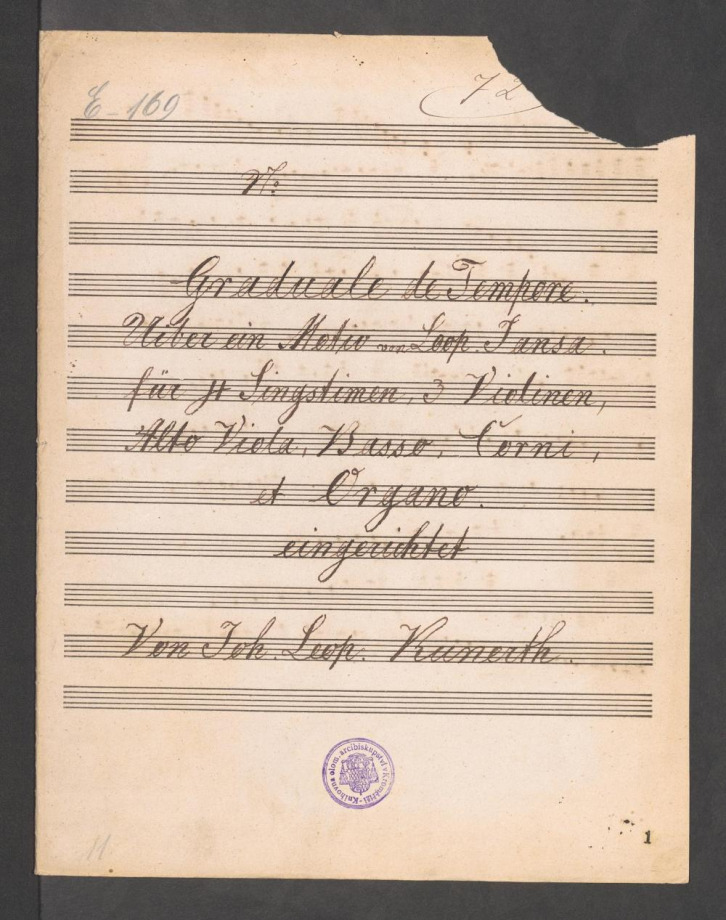 E-169
72
No:
Graduale de Tempore.
Ueber ein Motiv von Leop. Jansa.
für 4 Singstimen, 3 Violinen,
Alto Viola, Basso, Corni,
et Organo.
eingerichtet
Von Joh. Leop. Kunerth.
Knihovna olom. arcibiskupství v Kroměříži
1
11